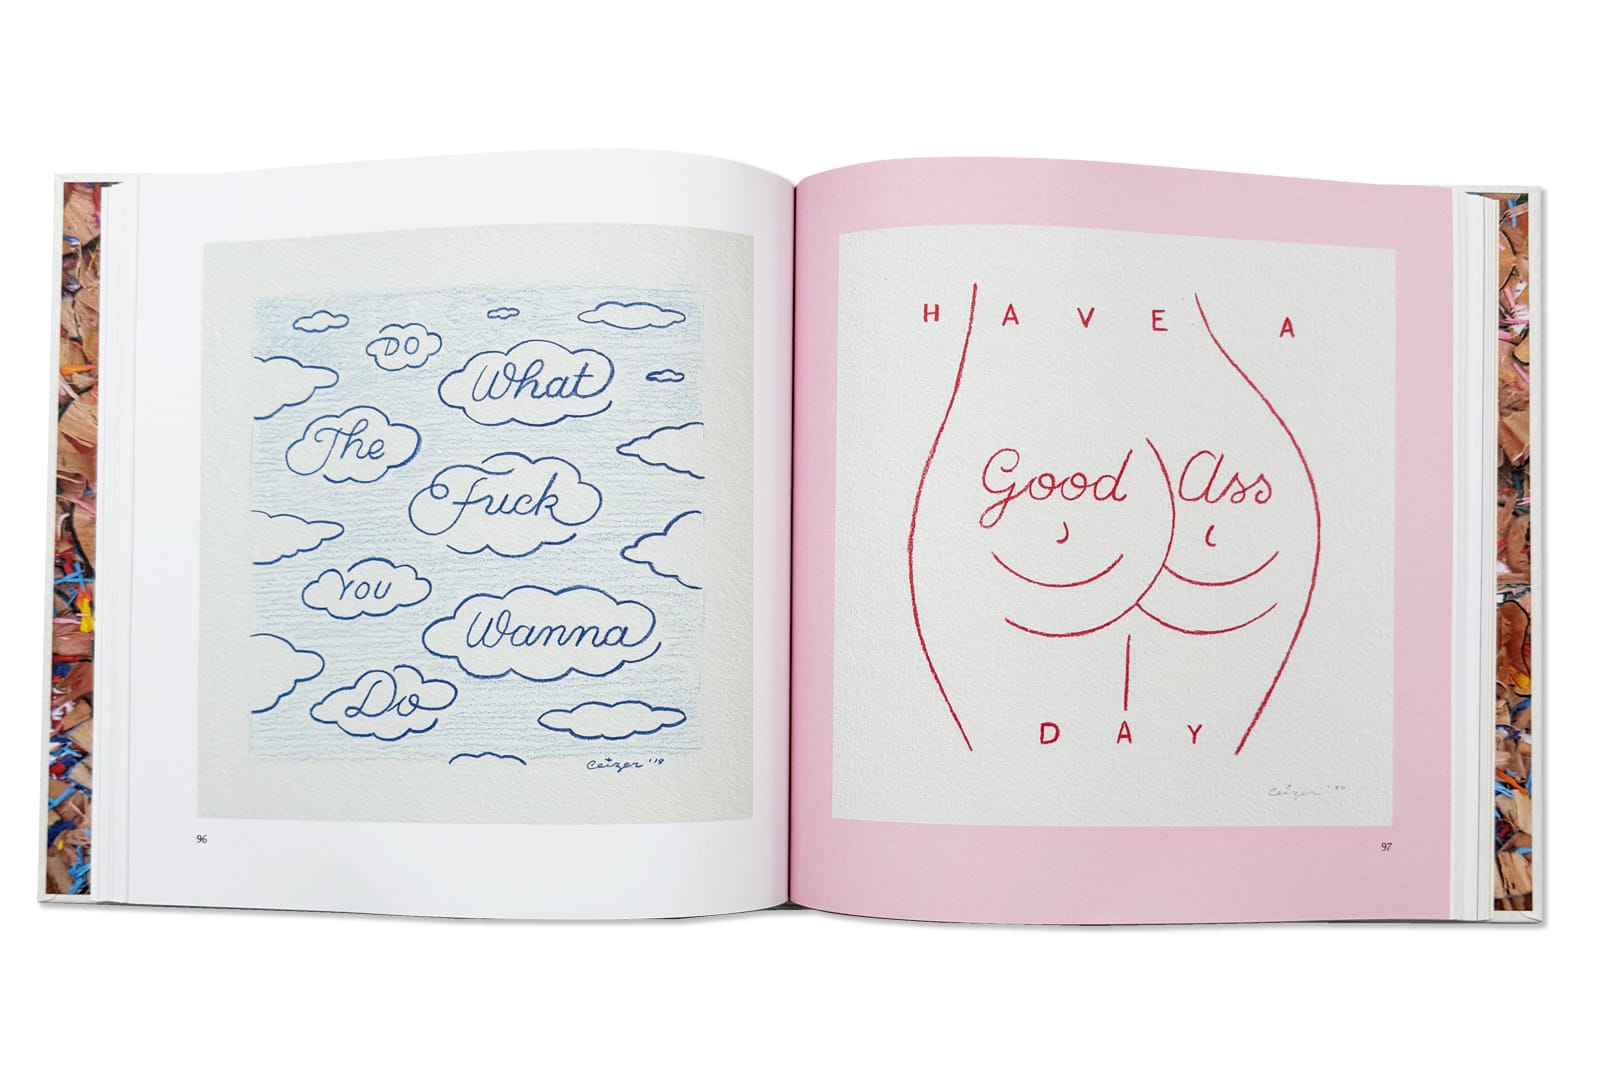 DO
What
The
Fuck
YOU
Wanna
Do
Ceizer '18
96
HAVE A
Good Ass
DAY
Ceizer '20
97